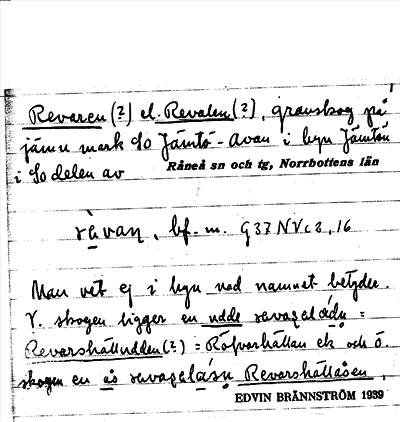 Revaren (?) el. Revalen (?), granskog på
jämn mark So Jämtö-Avan i byn Jämtön
i So delen av Råneå sn och tg, Norrbottens län
bf. m. G37NVc2,16
Man vet ej i byn vad namnet betyder.
V. skogen ligger en udde =
Revarshälludden (?) = Räfvarhällan ek och ö.
skogen en ås Revarshällåsen.
EDVIN BRÄNNSTRÖM 1939